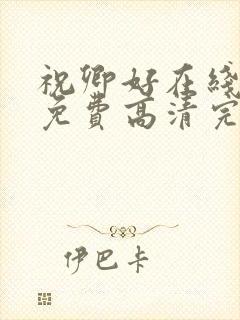 祝卿好在线
免费高清完
伊巴卡